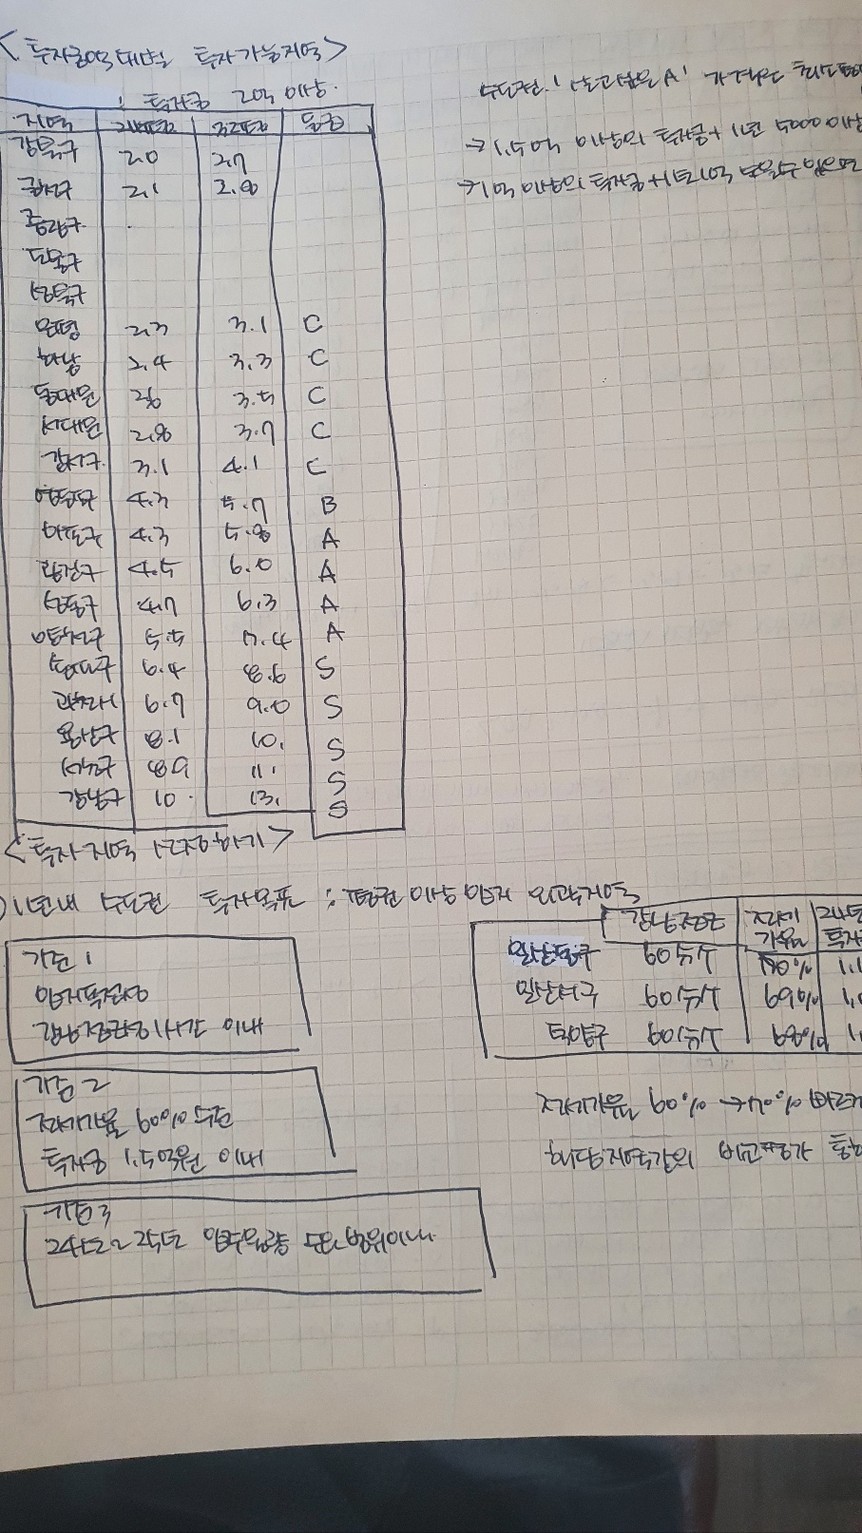 <투자금액대별 투자가능지역>
: 투자금 2억 이상.
지역 24평형 32평형 등급
강북구 2.0 2.7
금천구 2.1 2.8
중랑구
도봉구
성북구
은평 2.3 3.1 C
하남 2.4 3.3 C
동대문 2.6 3.5 C
서대문 2.8 3.7 C
강서구 3.1 4.1 C
영등포구 4.3 5.7 B
마포구 4.3 5.8 A
광진구 4.5 6.0 A
성동구 4.7 6.3 A
5.5 7.4 A
송파구 6.4 8.6 S
과천시 6.7 9.0 S
용산구 8.1 10. S
서초구 8.9 11. S
강남구 10 13. S
수도권.
→ 1.5억 이상의 투자금 + 1년 5000 이상
→ 1억 이상의 투자금 + 1년 1억 모을수 있으면
<투자지역 선정하기>
1년내 수도권 투자목표 : 평균 이상 입지 외곽지역
기준 1
입지독점성
강남접근성 1시간 이내
기준 2
전세가율 60% 수준
투자금 1.5억원 이내
기준 3
24년~25년 입주물량 수요 범위 이내.
강남접근 전세가율 24년 투자
일산동구 60분↓ 70% 1.1
일산서구 60분↓ 69% 1.0
덕양구 60분↓ 68% 1.
전세가율 60% → 70%
해당지역간의 비교평가